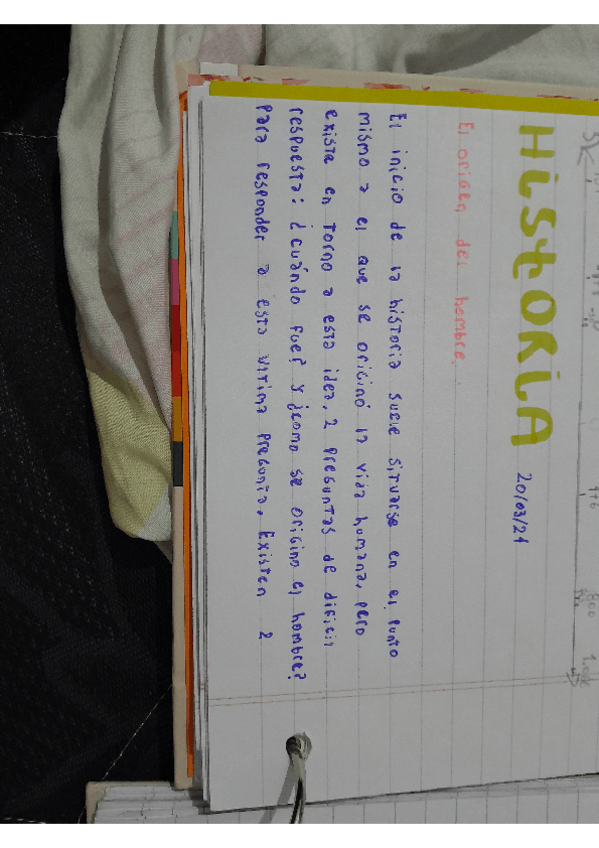 HistORIA 20/03/21
El origen del hombre.
El inicio de la historia suele situarse en el punto
mismo a el que se originó la vida humana, pero
existe en torno a esta idea, 2 preguntas de dificil
respuesta: ¿cuándo fue? y ¿como se origino el hombre?
Para responder a esta ultima pregunta, Existen 2